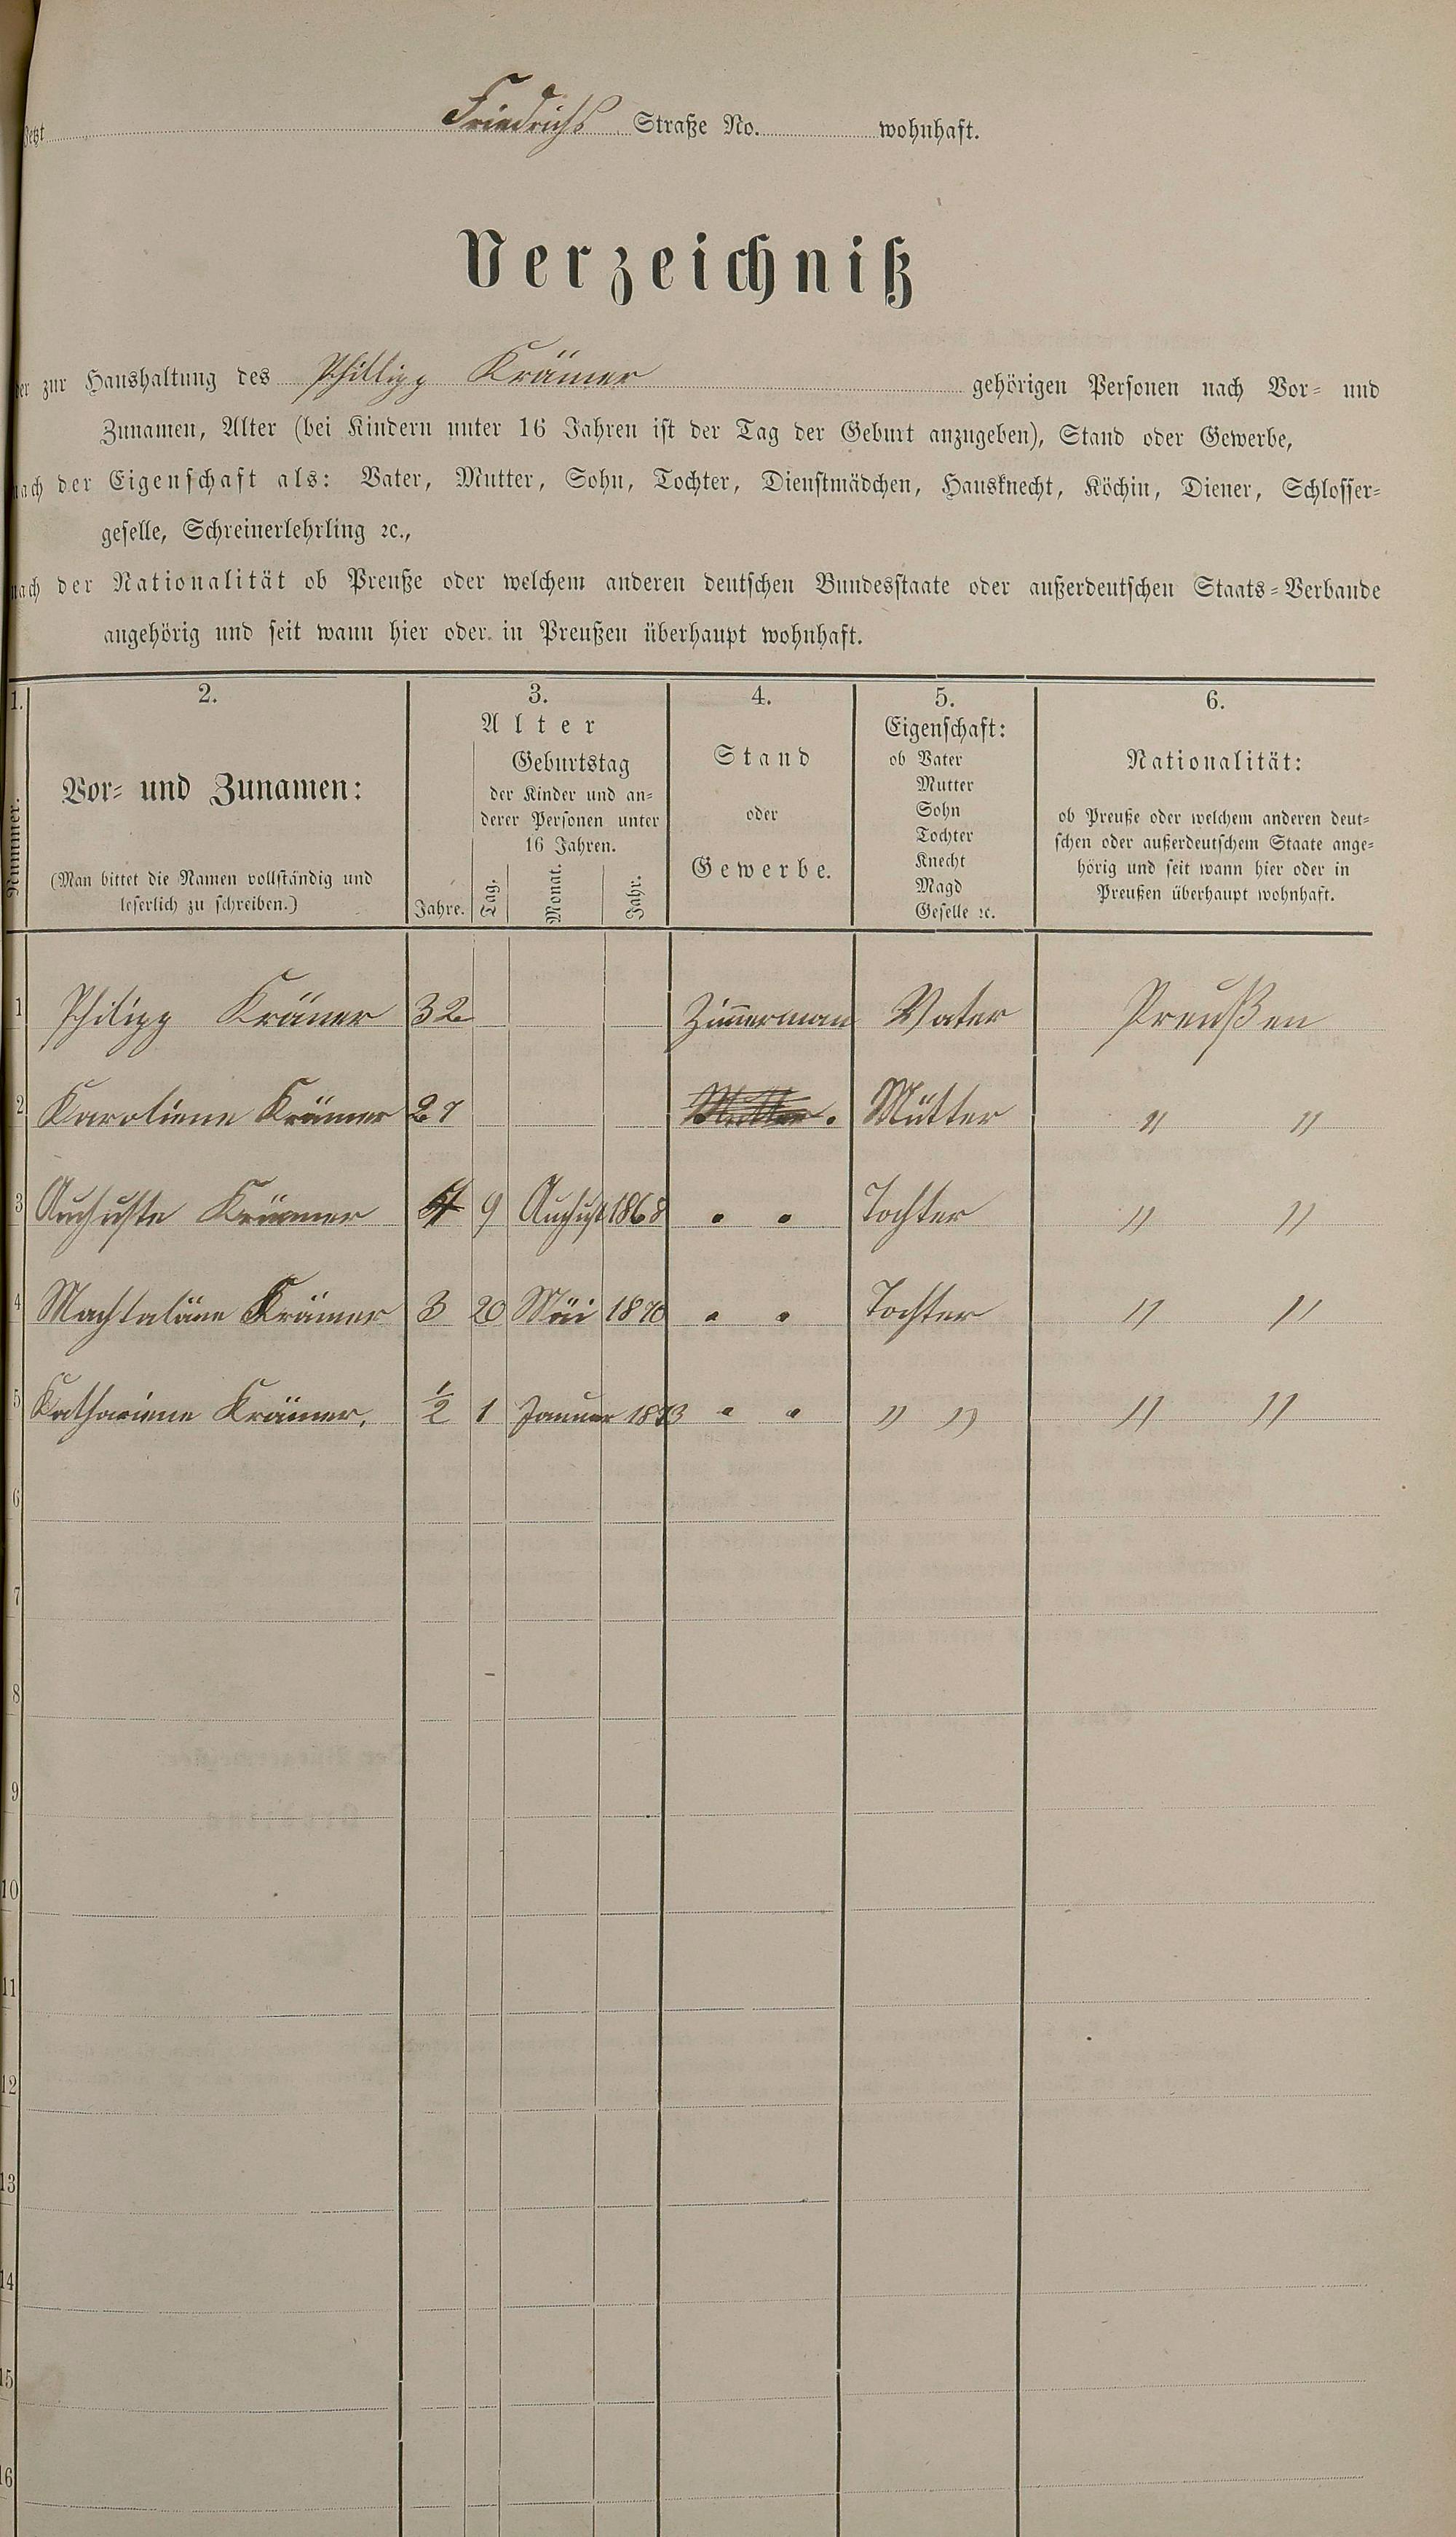 Jetzt Friedrichs Straße No. wohnhaft.
Verzeichniß
der zur Haushaltung des Phillipp Krämer gehörigen Personen nach Vor= und
Zunamen, Alter (bei Kindern unter 16 Jahren ist der Tag der Geburt anzugeben), Stand oder Gewerbe,
nach der Eigenschaft als: Vater, Mutter, Sohn, Tochter, Dienstmädchen, Hausknecht, Köchin, Diener, Schlosser=
geselle, Schreinerlehrling ꝛc.,
nach der Nationalität ob Preuße oder welchem anderen deutschen Bundesstaate oder außerdeutschen Staats=Verbande
angehörig und seit wann hier oder in Preußen überhaupt wohnhaft.
1.
Nummer.
2.
Vor= und Zunamen:
(Man bittet die Namen vollständig und
leserlich zu schreiben.)
3.
Alter
Jahre.
Geburtstag
der Kinder und an=
derer Personen unter
16 Jahren.
Tag. Monat. Jahr.
4.
Stand
oder
Gewerbe.
5.
Eigenschaft:
ob Vater
Mutter
Sohn
Tochter
Knecht
Magd
Geselle ꝛc.
6.
Nationalität:
ob Preuße oder welchem anderen deut=
schen oder außerdeutschem Staate ange=
hörig und seit wann hier oder in
Preußen überhaupt wohnhaft.
1 Philipp Krämer 32 Zimmerman Vater Preußen
2 Karoliene Krämer 27 Mutter. Mutter " "
3 Auchuste Krämer 9 August 1868 " " Tochter " "
4 Machtaläne Krämer 3 20 Mai 1870 " " Tochter " "
5 Kathariene Krämer, ½ 1 Januar 1873 " " " " " "
6
7
8
9
10
11
12
13
14
15
16